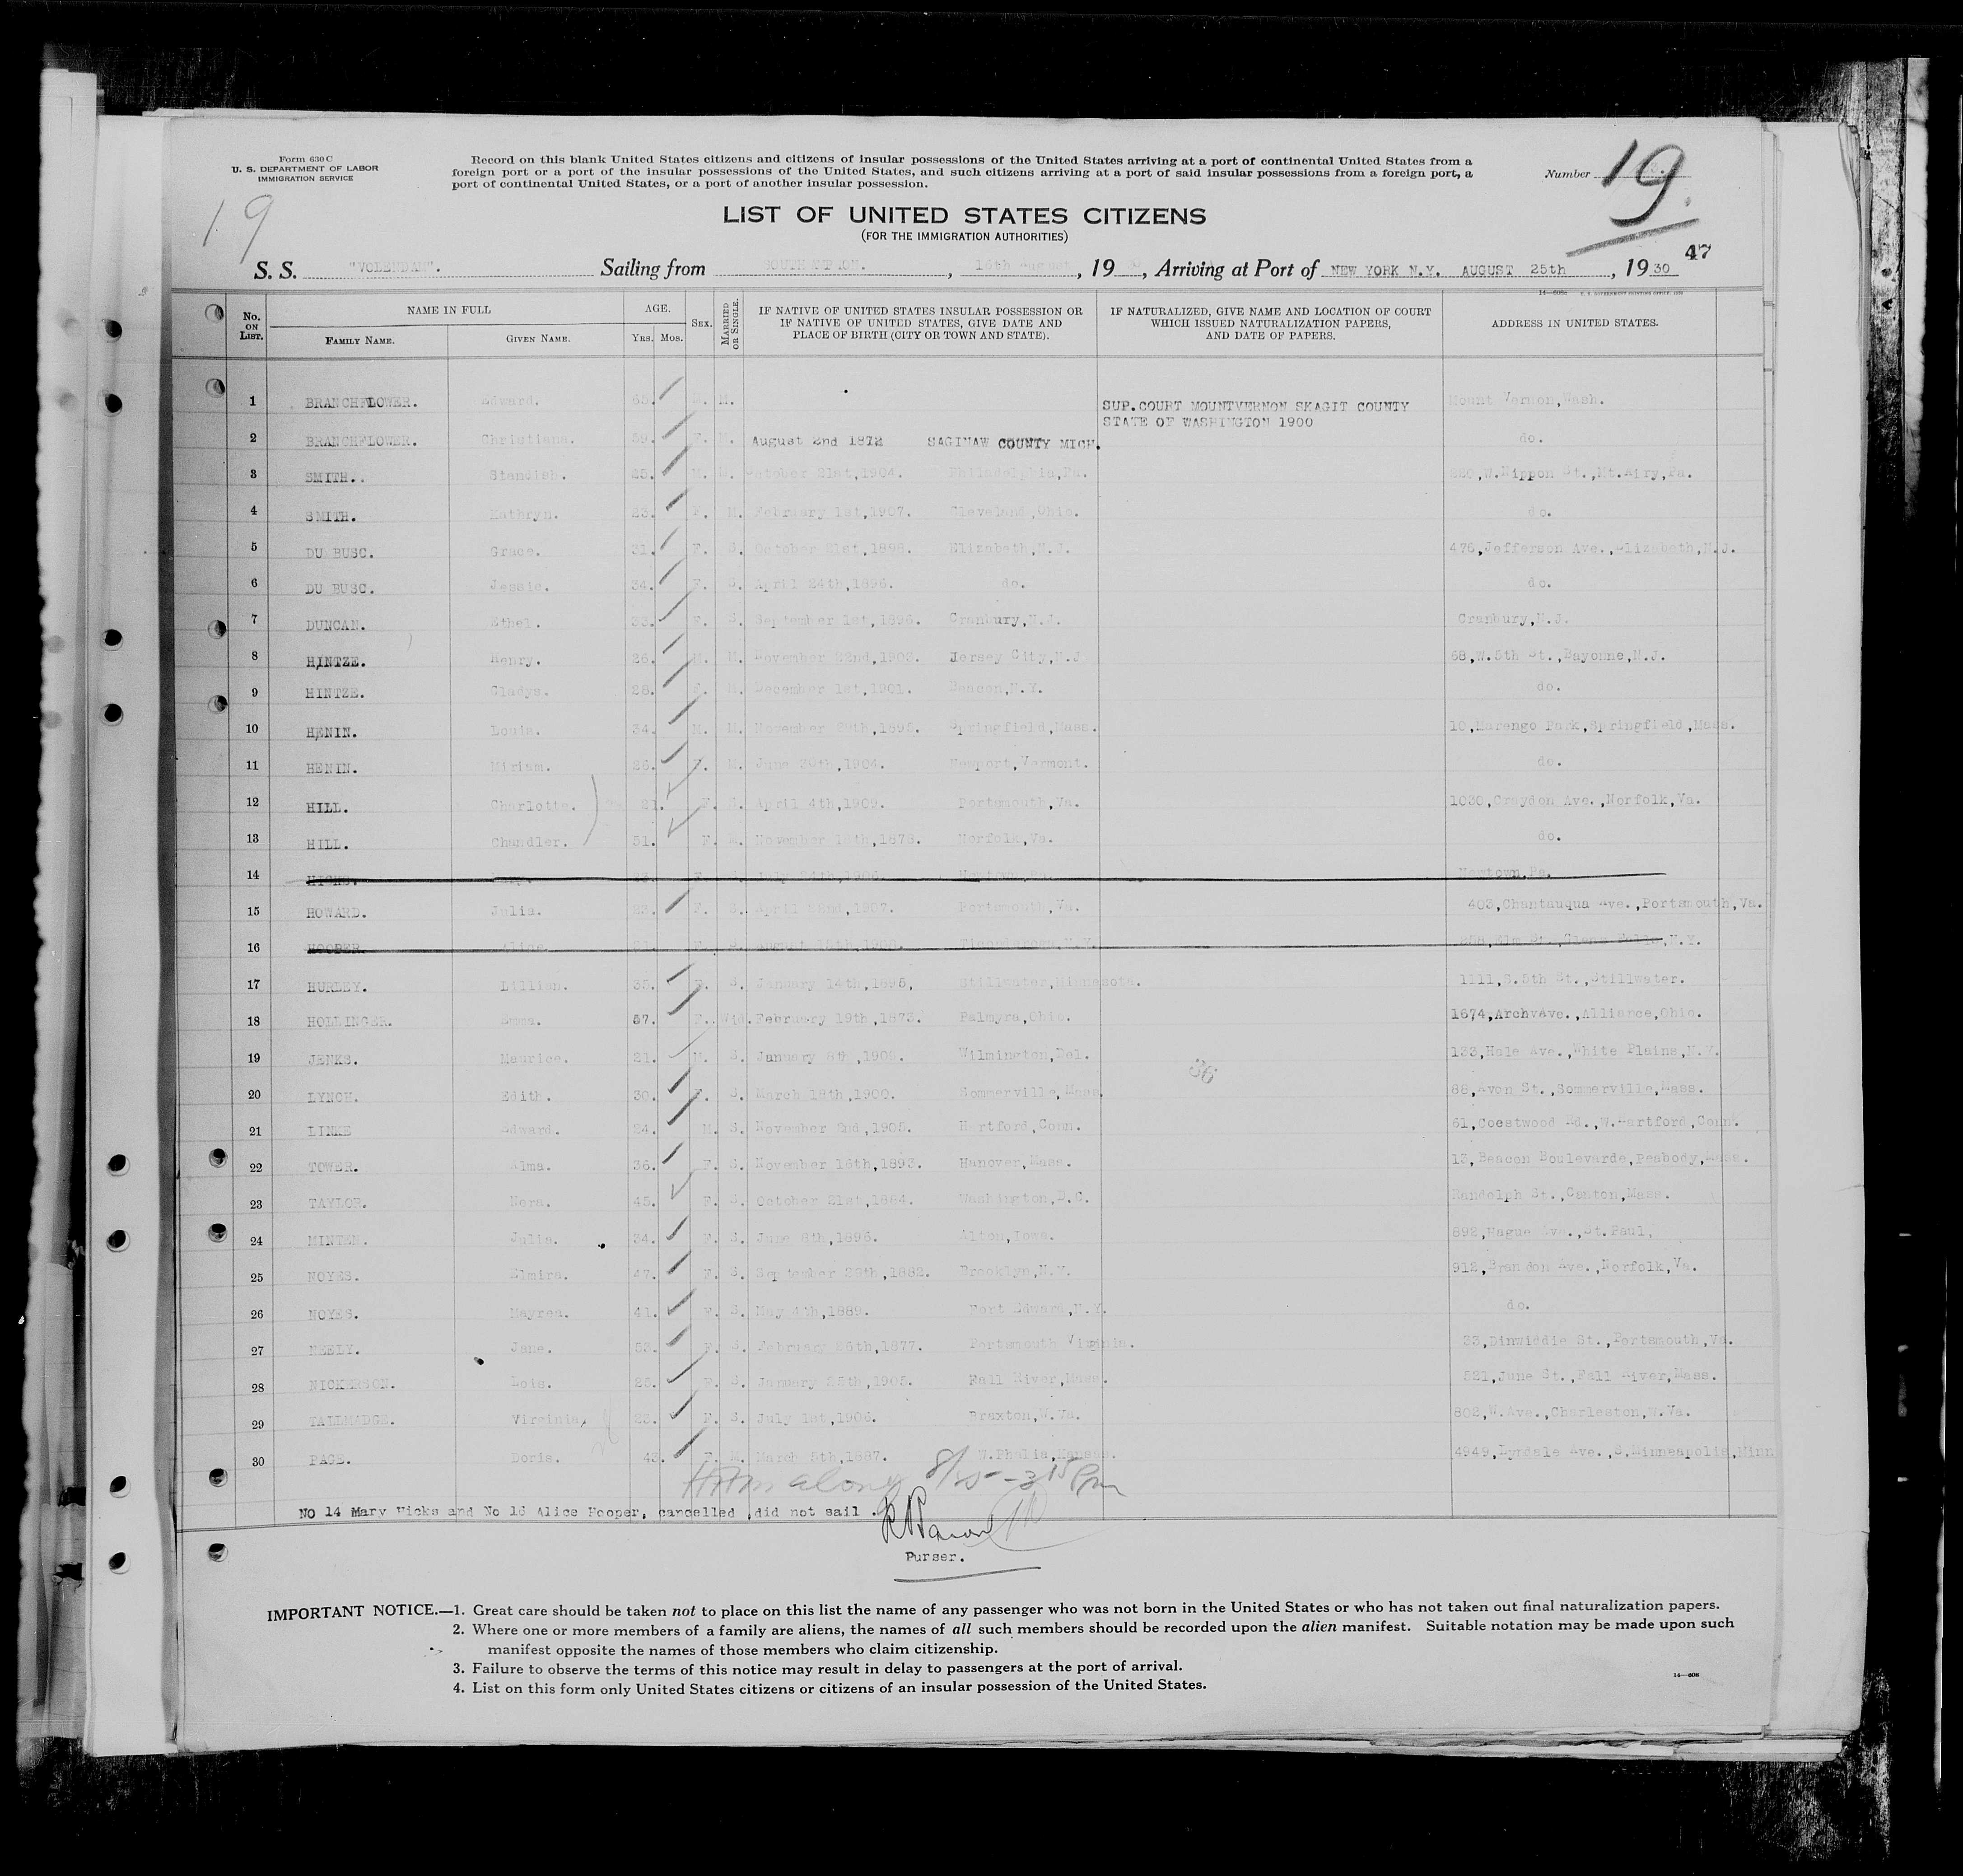 Form 630 C
U. S. DEPARTMENT OF LABOR
IMMIGRATION SERVICE
Record on this blank United States citizens and citizens of insular possessions of the United States arriving at a port of continental United States from a
foreign port or a port of the insular possessions of the United States, and such citizens arriving at a port of said insular possessions from a foreign port, a
port of continental United States, or a port of another insular possession.
Number 19.
19
LIST OF UNITED STATES CITIZENS
(FOR THE IMMIGRATION AUTHORITIES)
47
S. S. "VOLENDAM". Sailing from SOUTHAMPTON. , 16th August , 19 , Arriving at Port of NEW YORK N.Y. AUGUST 25th , 19 30
No. ON LIST. NAME IN FULL FAMILY NAME. GIVEN NAME. AGE. YRS. MOS. SEX. MARRIED OR SINGLE. IF NATIVE OF UNITED STATES INSULAR POSSESSION OR IF NATIVE OF UNITED STATES, GIVE DATE AND PLACE OF BIRTH (CITY OR TOWN AND STATE). IF NATURALIZED, GIVE NAME AND LOCATION OF COURT WHICH ISSUED NATURALIZATION PAPERS, AND DATE OF PAPERS. ADDRESS IN UNITED STATES.
1 BRANCHFLOWER. Edward. 65. M. M. SUP.COURT MOUNTVERNON SKAGIT COUNTY STATE OF WASHINGTON 1900 Mount Vernon,Wash.
2 BRANCHFLOWER. Christiana. 59. F. M. August 2nd 1872 SAGINAW COUNTY MICH. do.
3 SMITH. Standish. 25. M. M. October 21st,1904. Philadelphia,Pa. 220,W.Nippon St.,Mt.Airy,Pa.
4 SMITH. Kathryn. 23. F. M. February 1st,1907. Cleveland,Ohio. do.
5 DU BUSC. Grace. 31. F. S. October 21st,1898. Elizabeth,N.J. 476,Jefferson Ave.,Elizabeth,N.J.
6 DU BUSC. Jessie. 34. F. S. April 24th,1896. do. do.
7 DUNCAN. Ethel. 33. F. S. September 1st,1896. Cranbury,N.J. Cranbury,N.J.
8 HINTZE. Henry. 26. M. M. November 22nd,1903. Jersey City,N.J. 68,W.5th St.,Bayonne,N.J.
9 HINTZE. Gladys. 28. F. M. December 1st,1901. Beacon,N.Y. do.
10 HENIN. Louis. 34. M. M. November 29th,1895. Springfield,Mass. 10,Marengo Park,Springfield,Mass.
11 HENIN. Miriam. 26. F. M. June 30th,1904. Newport,Vermont. do.
12 HILL. Charlotte. 21. F. S. April 4th,1909. Portsmouth,Va. 1030,Graydon Ave.,Norfolk,Va.
13 HILL. Chandler. 51. F. M. November 18th,1878. Norfolk,Va. do.
14 HICKS. Mary. 23. F. S. July 24th,1906. Newtown,Pa. Newtown,Pa.
15 HOWARD. Julia. 23. F. S. April 22nd,1907. Portsmouth,Va. 403,Chantauqua Ave.,Portsmouth,Va.
16 HOOPER. Alice. 21. F. S. August 15th, Ticonderoga,N.Y. 258,Elm St.,Glens Falls,N.Y.
17 HURLEY. Lillian. 35. F. S. January 14th,1895, Stillwater,Minnesota. 1111,S.5th St.,Stillwater.
18 HOLLINGER. Emma. 57. F. Wid. February 19th,1873. Palmyra,Ohio. 1674,ArchvAve.,Alliance,Ohio.
19 JENKS. Maurice. 21. M. S. January 8th,1909. Wilmington,Del. 133,Hale Ave.,White Plains,N.Y.
20 LYNCH. Edith. 30. F. S. March 18th,1900. Sommerville,Mass. 88,Avon St.,Sommerville,Mass.
36
21 LINKE Edward. 24. M. S. November 2nd,1905. Hartford,Conn. 61,Coestwood Rd.,W.Hartford,Conn.
22 TOWER. Alma. 36. F. S. November 16th,1893. Hanover,Mass. 13,Beacon Boulevarde,Peabody,Mass.
23 TAYLOR. Nora. 45. F. S. October 21st,1884. Washington,D.C. Randolph St.,Canton,Mass.
24 MINTEN. Julia. 34. F. S. June 8th,1896. Alton,Iowa. 892,Hague Ave.,St.Paul,
25 NOYES. Elmira. 47. F. S. September 29th,1882. Brooklyn,N.Y. 912,Brandon Ave.,Norfolk,Va.
26 NOYES. Mayrea. 41. F. S. May 4th,1889. Fort Edward,N.Y. do.
27 NEELY. Jane. 53. F. S. February 26th,1877. Portsmouth Virginia. 33,Dinwiddie St.,Portsmouth,Va.
28 NICKERSON. Lois. 25. F. S. January 25th,1905. Fall River,Mass. 521,June St.,Fall River,Mass.
29 TALLMADGE. Virginia. 23. F. S. July 1st,1906. Braxton,W.Va. 802,W.Ave.,Charleston,W.Va.
30 PAGE. Doris. 43. F. M. March 5th,1887. W.Phalia,Kansas. 4949,Lyrdale Ave.,S.Minneapolis,Minn
along 8/25 - 3 15 Pm
NO 14 Mary Hicks and No 16 Alice Hooper, cancelled ,did not sail .
Purser.
IMPORTANT NOTICE.—1. Great care should be taken not to place on this list the name of any passenger who was not born in the United States or who has not taken out final naturalization papers.
2. Where one or more members of a family are aliens, the names of all such members should be recorded upon the alien manifest. Suitable notation may be made upon such
manifest opposite the names of those members who claim citizenship.
3. Failure to observe the terms of this notice may result in delay to passengers at the port of arrival.
4. List on this form only United States citizens or citizens of an insular possession of the United States.
14—608